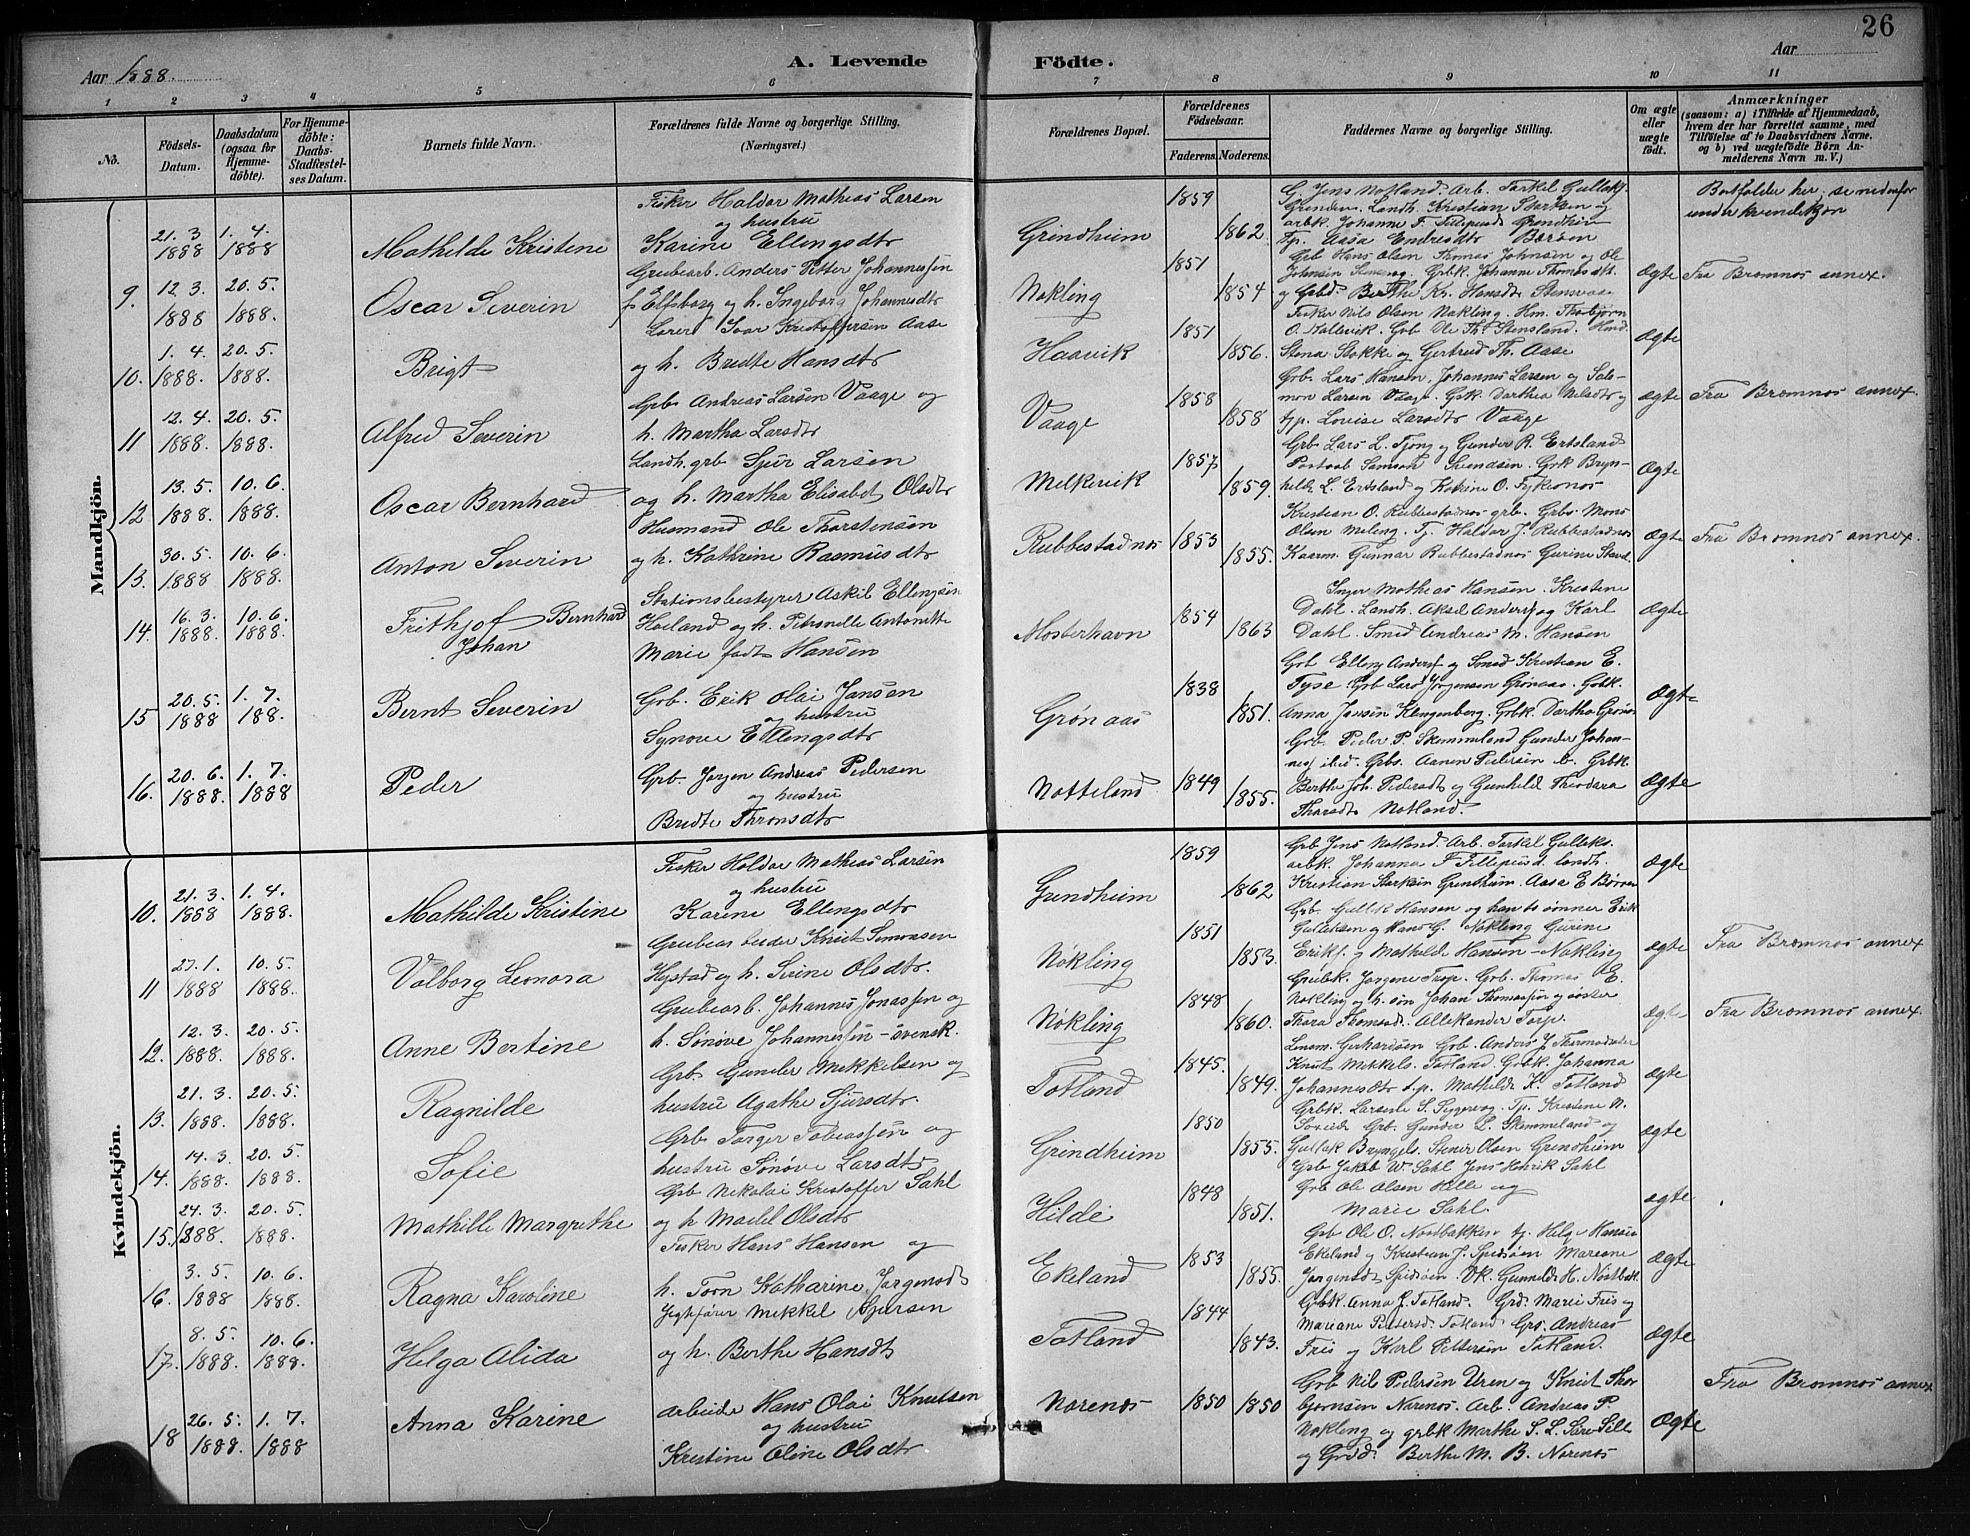 26
Aar 1888.
A. Levende Födte.
Aar
1 2 3 4 5 6 7 8 9 10 11
No.
Födsels-Datum.
Daabsdatum (ogsaa for Hjemme-döbte).
For Hjemme-döbte: Daabs-Stadfæstel-ses Datum.
Barnets fulde Navn.
Forældrenes fulde Navne og borgerlige Stilling.
(Næringsvei.)
Forældrenes Bopæl.
Forældrenes Födselsaar.
Faderens. Moderens.
Faddernes Navne og borgerlige Stilling.
Om ægte eller uægte födt.
Anmærkninger
(saasom: a) i Tilfælde af Hjemmedaab, hvem der har forrettet samme, med Tilföielse af to Daabsvidners Navne. og b) ved uægtefödte Börn An-melderens Navn m. V.)
Mandkjön.
21. 3. 1888 1. 4. 1888 Mathilde Kristine
Fisker Haldor Mathias Larsen
og hustru
Karine Ellingsdtr
Grindheim 1859 1862
G. Jens Notland. Arb. Torkel Gulleks.
Landh. Kristian Starksen og
arbk. Johanne F.
Tp. Aasa Endresdtr
Bortfalder her, se nedenfor
under kvindekjøn
9. 12 3. 1888 20. 5. 1888. Oscar Severin
Grubearb. Anders Petter Johannessen
f. Elfsborg og h. Ingeborg Johannesdtr
Nøkling 1851 1854
Grb Hans Olsen Thomas Johnsen og Ole
Johnsen Grbk. Johanne Thomasdt.
og Grbd. Berthe Kr. Hansdtr
Ægte Fra Bremnes annex.
10. 1. 4. 1888. 20. 5. 1888. Brigt
Lærer Ivar Kristoffersen Aase
og h. Bredte Hansdtr
Haavik 1851 1856.
Fisker Nils Olsen Nøkling. Hm. Thorbjørn
O. Hallevik. Grb Ole Th. Stensland.
Stena Stokke og Gertrud Th. Aase
Ægte
11 12. 4. 1888. 20. 5. 1888. Alfred Severin
Grb Andreas Larsen Vaage og
h. Martha Larsdtr
Vaage 1858 1858
Grb. Lars Hansen, Johannes Larsen og Salo-
mon Larsen Vaage. Gsk. Dorthea Nilsdtr og
tjp. Lovise Larsdtr Vaage
ægte Fra Bremnes annex.
12 13. 5. 1888. 10. 6. 1888. Oscar Bernhard
Landh. grb Sjur Larsen
og h. Martha Elisabet Olsdtr
Melkevik 1857 1859.
Grb Lars L. Tjong og Gunder R. Eidsland
Postaab Samson Svendsen. Grk Bryn-
hilde L. Eidsland og Katrine O.
Ægte
13. 30. 5. 1888 10. 6. 1888 Anton Severin
Husmand Ole Thorstensøn
og h. Kathrine Rasmusdtr
Rubbestadnes 1853 1855.
Kristian O. Rubbestadnes grb. Grbs. Mons
Olsen Meling. Tj. Haldor J. Rubbestadnes
Kaarm. Gunnar Rubbestadnes Gurine
Ægte Fra Bremnes annex.
14. 16. 3. 1888. 10. 6. 1888. Frithjof Bernhard
Johan
Stationsbestyrer Askil Ellingsen
Høeland og h. Petronelle Antonette
Marie født Hansen
Mosterhavn 1854 1863
Mathias Hansen. Kristine
Dahl. Landh. Aksel Anders og Karl
Dahl. Smed Andreas M. Hansen
Ægte
15 20. 5. 1888 1. 7. 188. Bernt Severin
Grb. Erik Olai Jansen
og hustru
Synove Ellingsdtr
Grønaas 1838 1851.
Grb Elling Anders og Smed Kristian E.
Tyse. Grb Lars Jørgensen Grønaas. Gbk.
Anna Jansen Klingenberg. Grbk. Dortha Grøna
Ægte
16. 20. 6. 1888. 1. 7. 1888 Peder
Grb. Jørgen Andreas Pedersen
og hustru
Bredte Thronsdtr
Notteland 1849 1855.
Grb. Peder P. Skimmeland Gunder Johan-
nes. ibid. Grbs. Aanen Pedersen b. Grbk.
Berthe Joh. Pedersdt og Gunhild Theodora
Notland.
ægte
Kvindekjön.
10. 21. 3. 1888 1. 4. 1888. Mathilde Kristine
Fisker Haldor Mathias Larsen
og hustru
Karine Ellingsdtr
Grindheim 1859 1862
Grb Jens Notland. Arb. Torkel Gulleks.
arbk. Johanna F Fillipusd. landh.
Kristian Starksen Grindheim. Aasa E
ægte
11 27. 1. 1888 10. 5. 1888. Valborg Leonora
Grubearbeider Knut Simonsen
Hystad og h. Serine Olsdtr.
Nøkling 1851 1853.
Grb. Gullik Hansen og hans sønner Erik
Gulleksen og Hans G. Nøkling Gurine
Eriks. og Mathilde Hansen Nøkling
ægte Fra Bremnes annex
12. 12. 3. 1888. 20. 5. 1888. Anne Bertine
Grubearb. Johannes Jonassen og
h. Sønøve Johannessen – svensk.
Nøkling 1848 1860.
Grubk. Jørgine Torp. Grb. Thomas E.
Nøkling og h. søn Johan Thomassen og søster
Thora Thomasd. Alleksander Torp.
ægte Fra Bremnes annex.
13. 21. 3. 1888. 20. 5. 1888. Ragnilde
Grb. Gunder Mikkelsen og
hustru Agathe Sjursdtr.
Totland 1845. 1849.
Gerhardsen Grb. Anders J.
Knut Mikkels. Totland. Grbk. Johanna
Johannesdtr. t.p. Mathilde K. Totland
ægte
14. 14. 3. 1888. 20. 5. 1888. Sofie
Grb Torger Tobiassen og
hustru Sønøve Larsdtr
Grindheim 1850 1855.
Grbk. Larsine S. Tp. Kristine N.
Grb. Gunder L. Skimmeland og
Gullak Bryngels. Stener Olsen Grindheim
ægte
15. 24. 3. 1888. 20. 5. 1888. Mathilde Margrethe
Grb Nikolai Kristoffer Sahl
og h Madel Olsdtr
Hilde 1848 1851.
Grb Jakob W. Sahl Jens Henrik Sahl
Grb Ole Olsen Hille og
Marie Sahl.
ægte
16. 3. 5. 1888 10. 6. 1888. Ragna Karoline
Fisker Hans Hansen og
h. Torn Katharine Jørgensdt
Ekeland 1853 1855.
Grb Ole O. Nordbakken tj. Helge Hansen
Ekeland og Kristian J. Spidsøen Mariane
Jørgensdt Spidsøen. Gunnelde H.
Ægte
17. 8. 5. 1888. 10. 6. 1888. Helga Alida
Jegtfører Mikkel Sjursen
og h. Berthe Hansdt
Totland 1844 1843.
Grbk. Anna J. Totland. Grd. Marie Friis og
Mariane Pettersd. Totland Grs. Andreas
Friis og Karl Pettersen Totland.
Ægte
18 26. 5. 1888. 1. 7. 1888 Anna Karine
Arbeider Hans Olai Knutsen
og hustru
Kristine Oline Olsdtr
Norenes 1850 1850
Grb Nils Pedersen Uren og Knut Thor
bjørnsen Norenes. Arb. Andreas P.
Nøkling og grbk Marthe S. L.
og Grdd. Berthe M. B. Norenes
Ægte Fra Bremnes annex